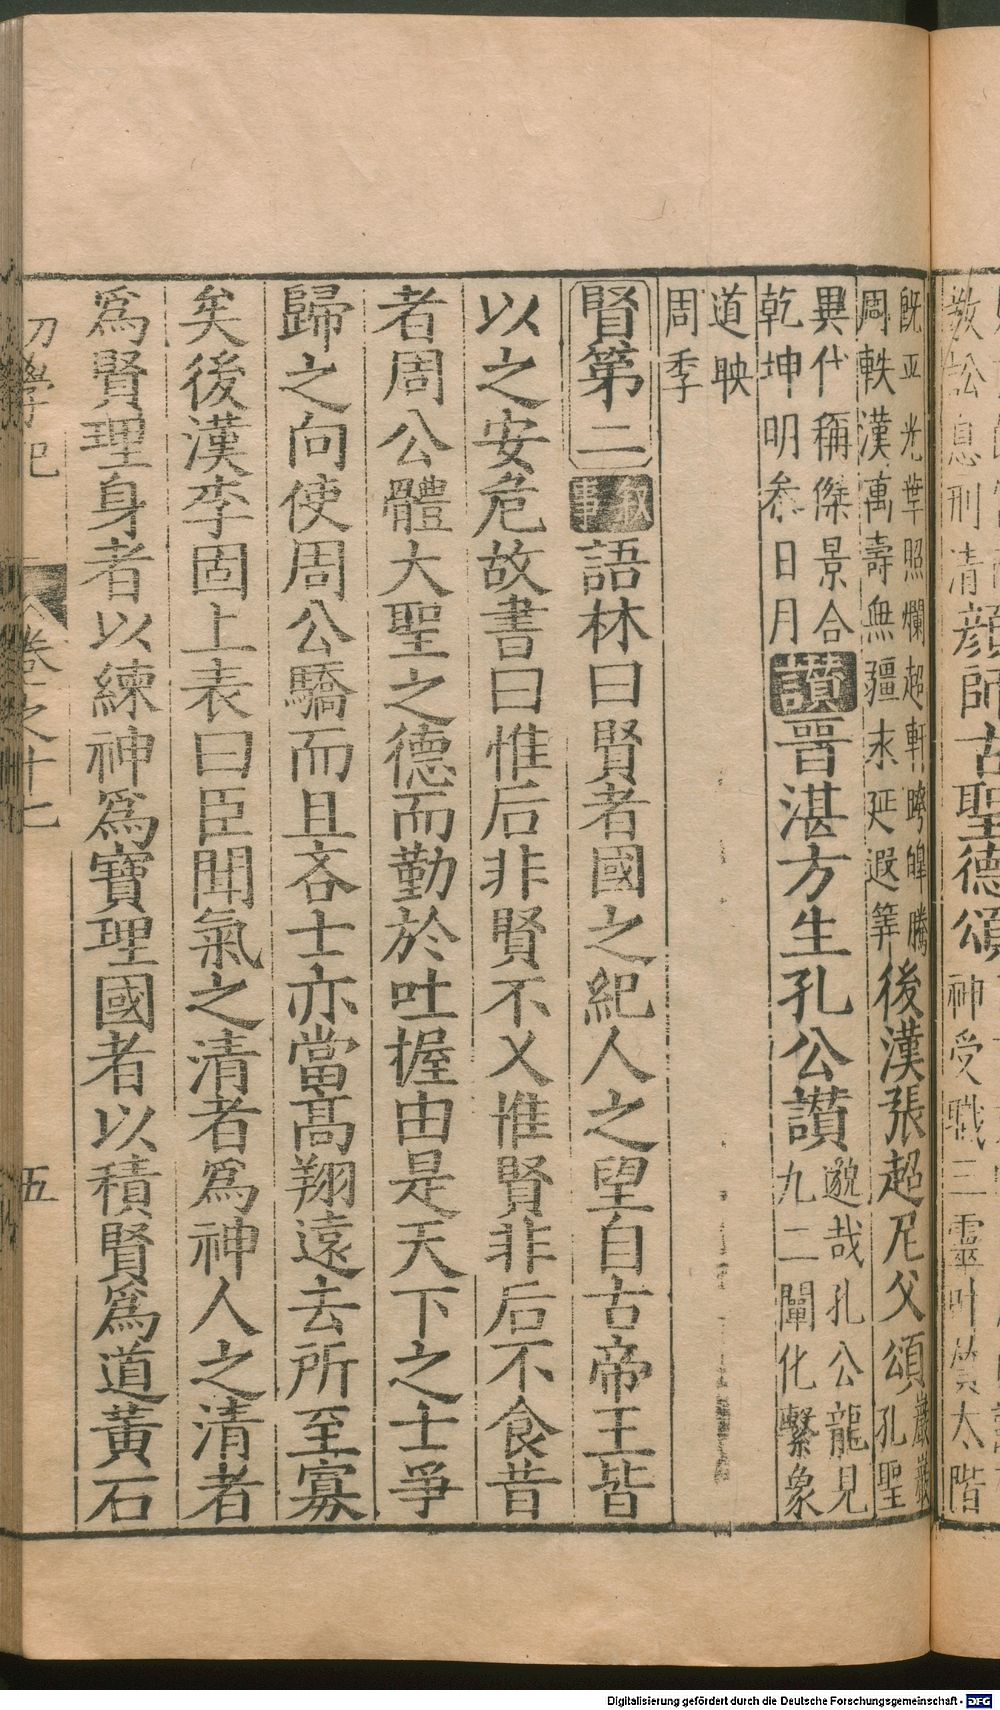 教訟息刑清顔師古聖德頌神受職三靈叶贊太階
既平光華照爛超軒跨皥騰
周軼漢萬壽無疆永延遐筭
後漢張超尼父頌
巖巖
孔聖
異代稱傑景合
乾坤明叅日月
讃晉湛方生孔公讃
邈哉孔公龍見
九二闡化繫象
道映
周季
賢第二敘事語林曰賢者國之紀人之望自古帝王皆
以之安危故書曰惟后非賢不乂惟賢非后不食昔
者周公體大聖之德而勤於吐握由是天下之士爭
歸之向使周公驕而且吝士亦當高翔遠去所至寡
矣後漢李固上表曰臣聞氣之清者爲神人之清者
爲賢理身者以練神爲寶理國者以積賢爲道黃石
初學記 卷之十七 五
Digitalisierung gefördert durch die Deutsche Forschungsgemeinschaft - DFG